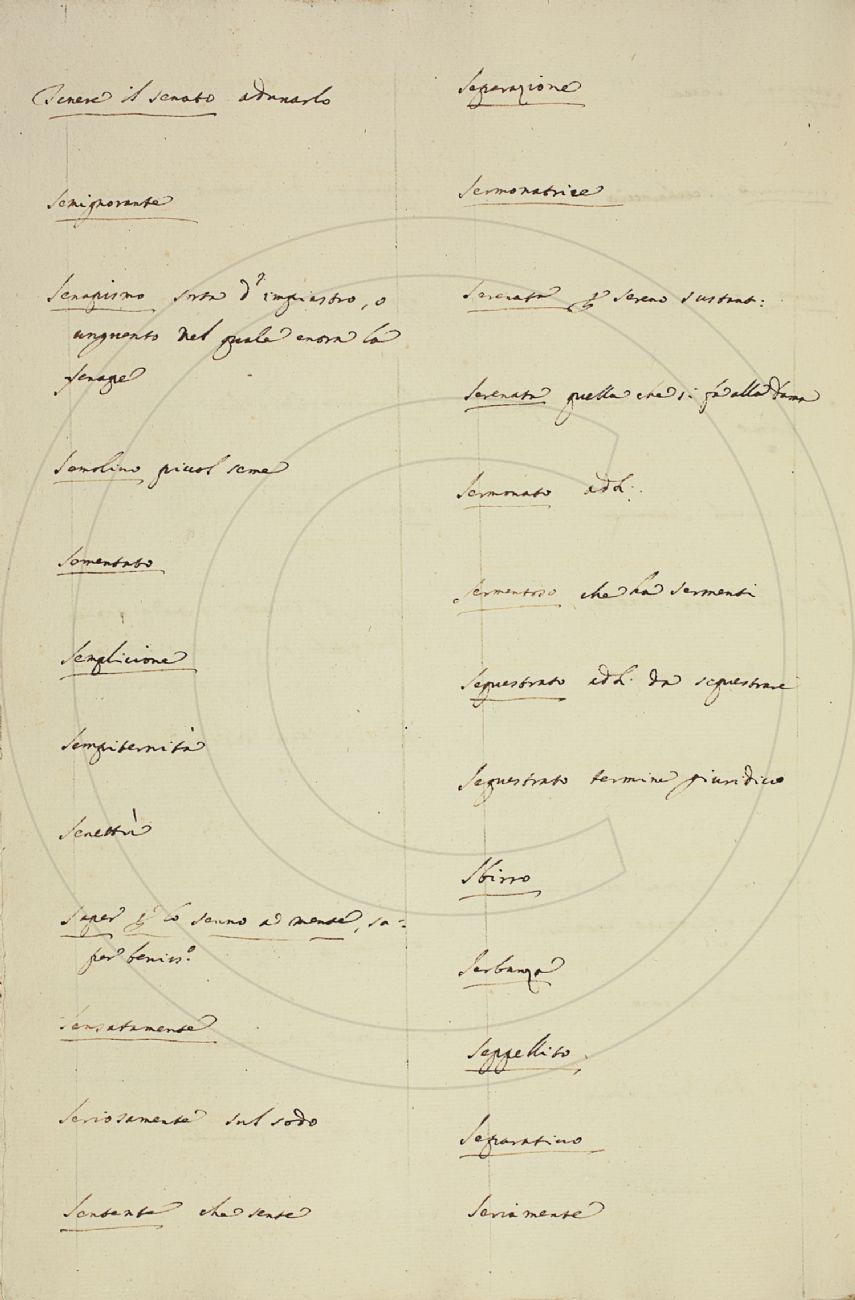 Tenere il senato adunarlo
Semignorante
Senapismo sorta d' impiastro, o
unguento nel quale entra la
senape
Semolino piccol seme
Sementato
Semplicione
Sempiternità
Senettù
Saper p lo senno a mente, sa-
per beniss.º
Sensatamente
Seriosamente sul sodo
Sentente che sente
Separazione
Sermonatrice
Serenata p sereno sustant:
Serenata quella che si fa alla Dama
Sermonato add.
Sermentoso che ha sermenti
Sequestrato add. da sequestrare
Sequestrato termine giuridico
Sbirro
Serbanza
Seppellito
Separativo
Seriamente